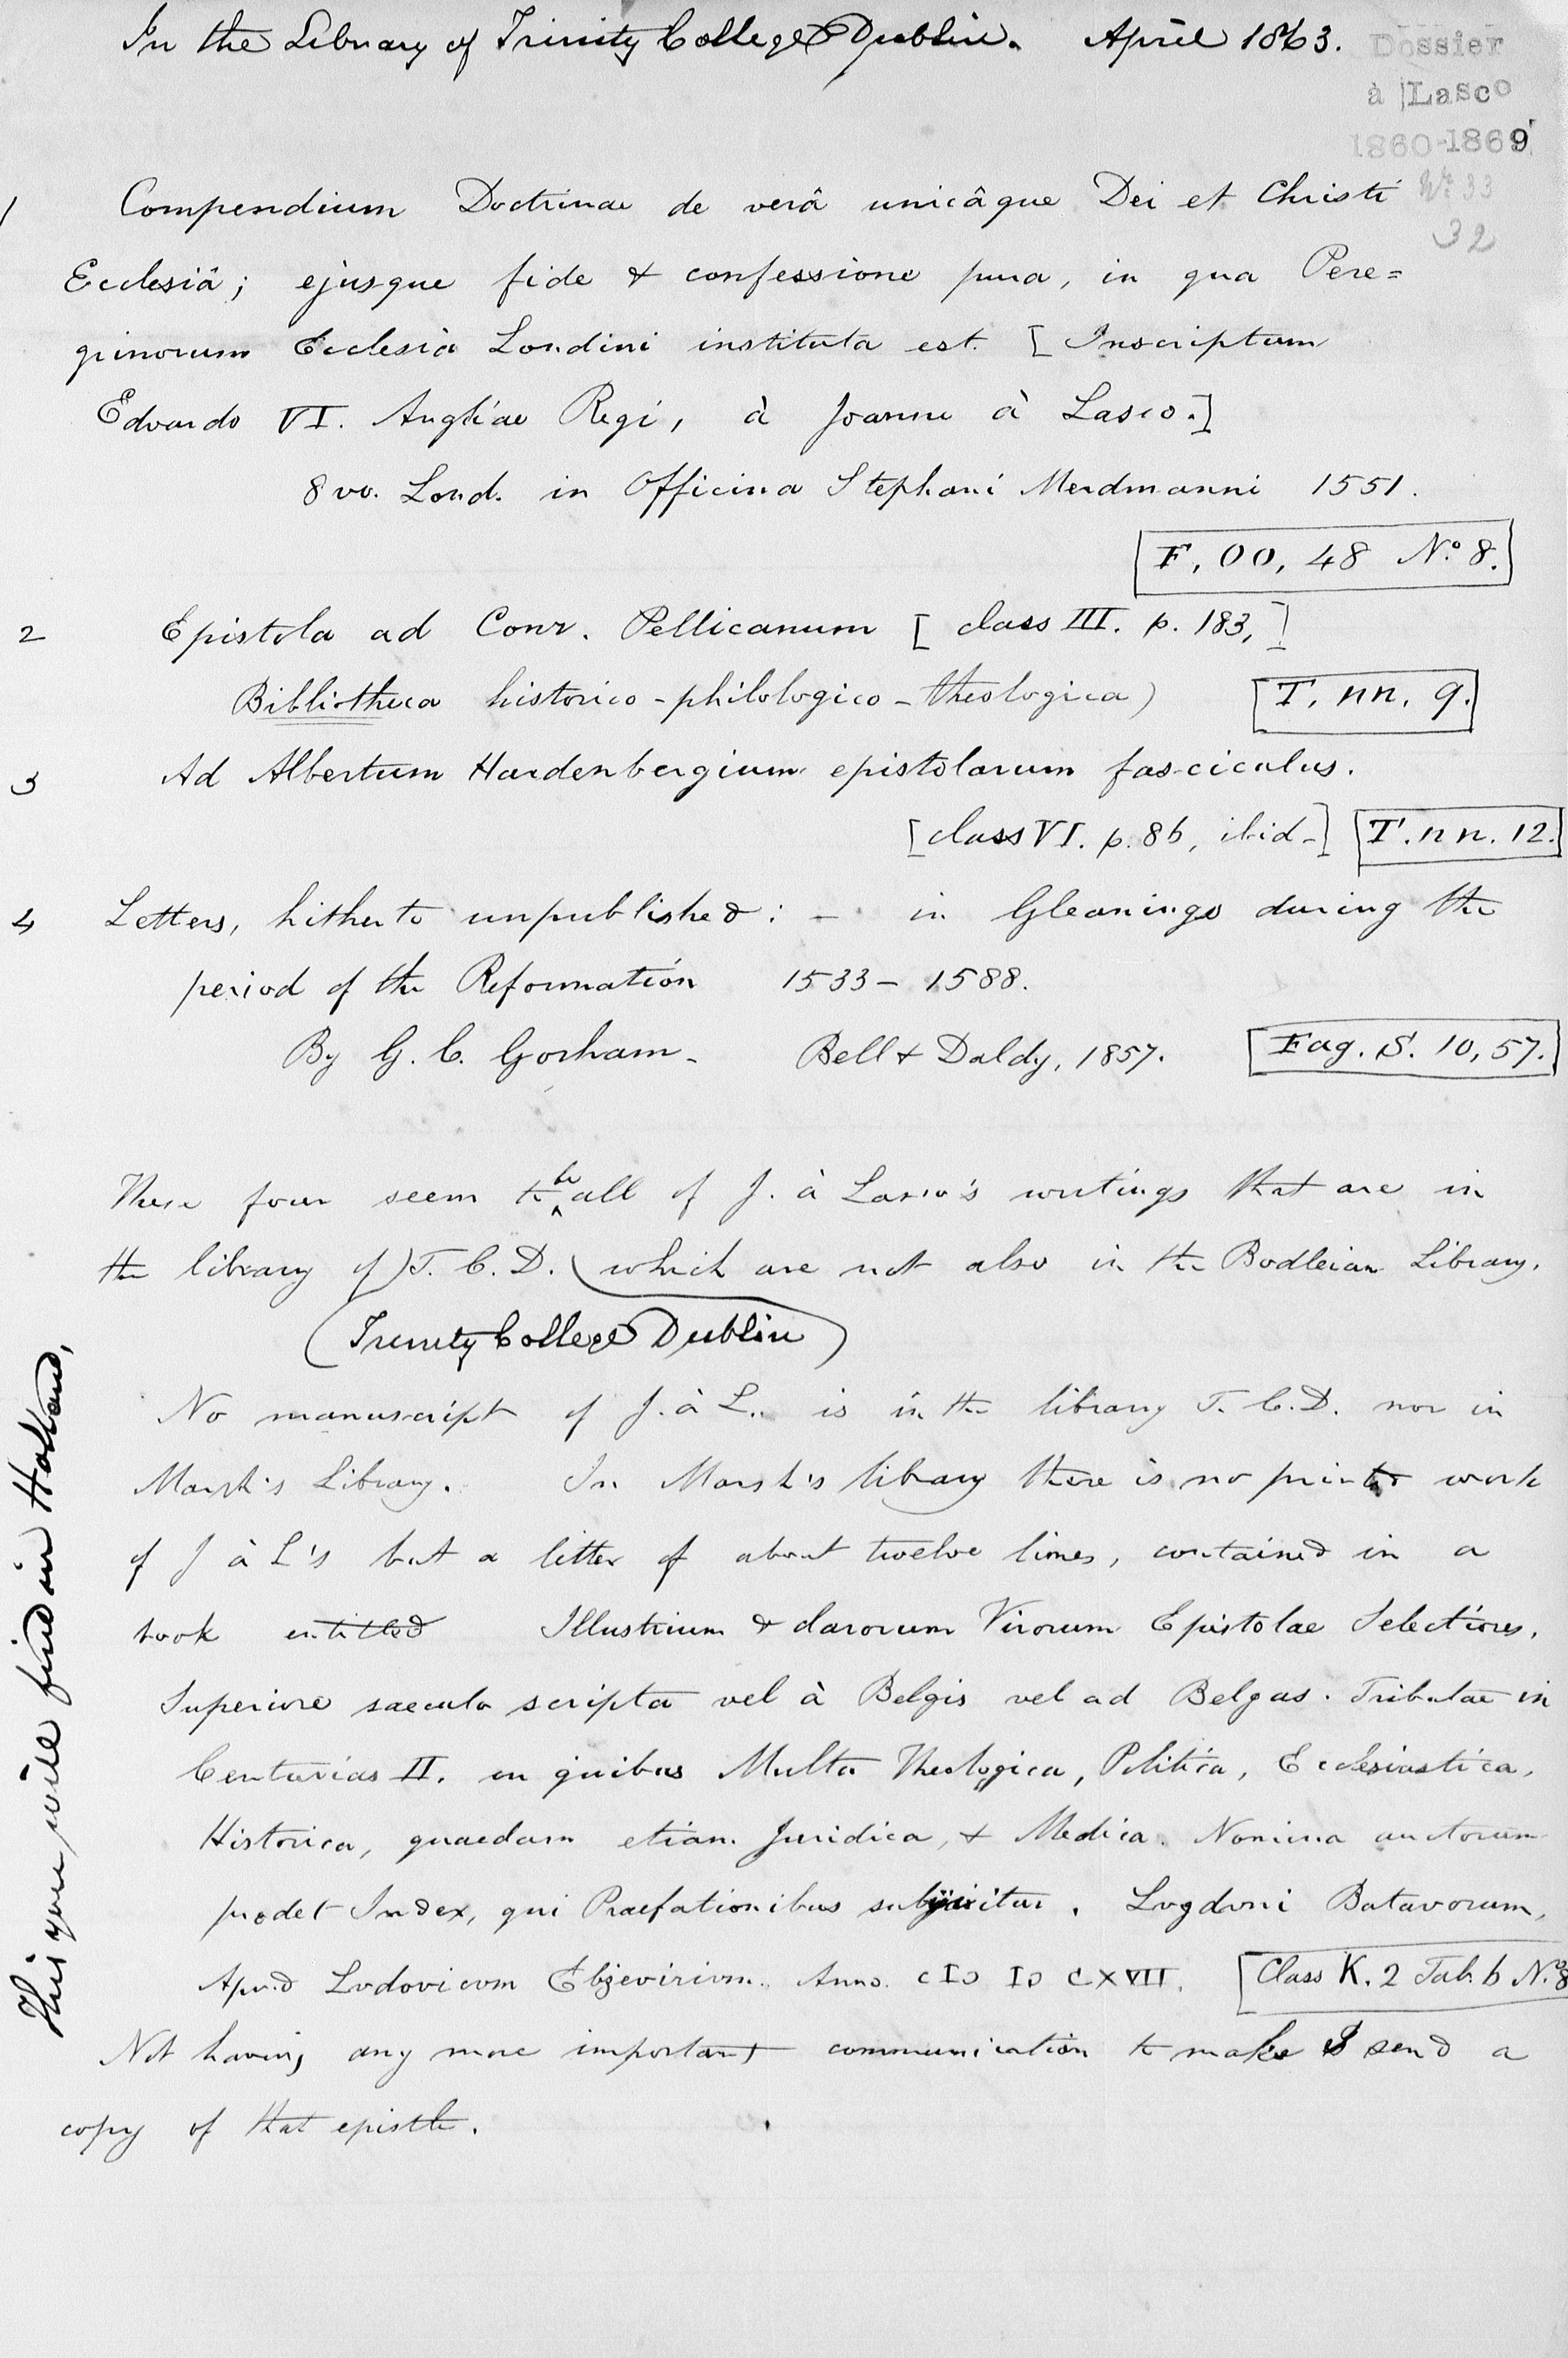 In the Library of Trinity College Dublin. April 1863.
Dossier
à Lasco
1860-1869
No 33
32
1 Compendium Doctrinae de verâ unicâque Dei et Christi
Ecclesiâ; ejusque fide & confessione pura, in qua Pere=
grinorum Ecclesia Londini instituta est. [Inscriptum
Edvardo VI. Angliae Regi, à Joanne à Lasco.]
8vo. Lond. in Officina Stephani Merdmanni 1551.
F, OO, 48 No. 8.
2 Epistola ad Conr. Pellicanum [class III. p. 183,]
Bibliotheca historico-philologico-theologica) T. nn. 9.
3 Ad Albertum Hardenbergium epistolarum fasciculus.
[class VI. p. 86, ibid.] T. nn. 12.
4 Letters, hitherto unpublished: — in Gleanings during the
period of the Reformation 1533 - 1588.
By G. C. Gorham. Bell & Daldy, 1857. Fag. S. 10, 57.
These four seem to be all of J. à Lasco's writings that are in
the library of T. C. D. which are not also in the Bodleian Library.
(Trinity College Dublin)
No manuscript of J. à L. is in the library T. C. D. nor in
Marsh's Library. In Marsh's library there is no printed work
of J à L's but a letter of about twelve lines, contained in a
book entitled Illustrium & clarorum Virorum Epistolae Selectiores,
Superiore saeculo scripta vel à Belgis vel ad Belgas. Tributae in
Centurias II. in quibus Multa Theologica, Politica, Ecclesiastica,
Historica, quaedam etiam Juridica, & Medica. Nomina auctorum
prodet Index, qui Praefationibus subjicitur. Lvgdvni Batavorum,
Apvd Lvdovicvm Elzevirivm. Anno. CIↃ IↃ CXVII. [Class K. 2 Tab. 6 No. 8
Not having any more important communication to make I send a
copy of that epistle.
This you will find in Holland,